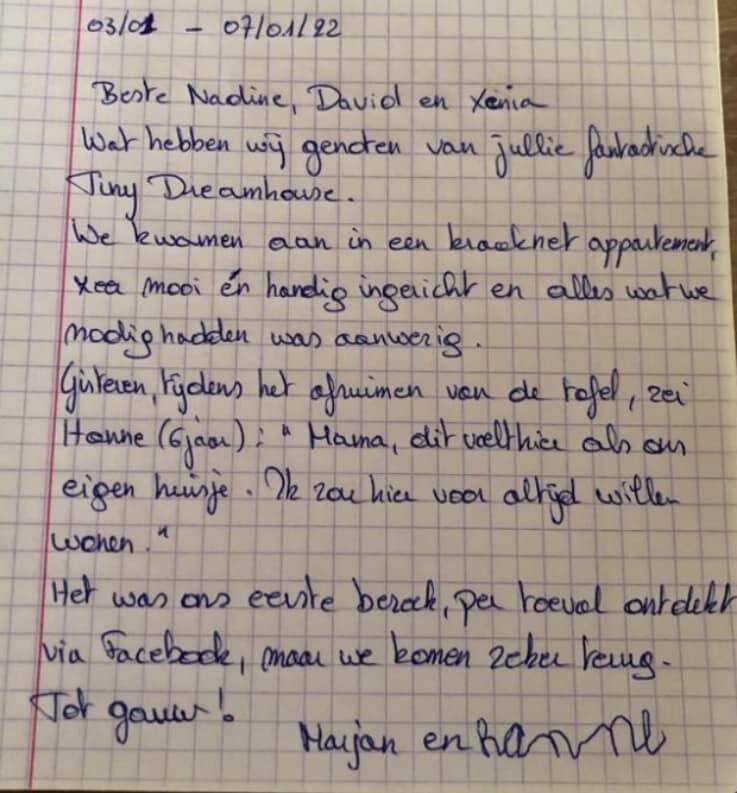 03/01 - 07/01/22
Beste Nadine, David en Xenia
Wat hebben wij genoten van jullie fantastische
Tiny Dreamhouse.
We kwamen aan in een kraaknet appartement,
zeer mooi én handig ingericht en alles wat we
nodig hadden was aanwezig.
Gisteren, tijdens het afruimen van de tafel, zei
Hanne (6 jaar) : "Mama, dit voelt hier als ons
eigen huisje. Ik zou hier voor altijd willen
wonen."
Het was ons eerste bezoek, per toeval ontdekt
via Facebook, maar we komen zeker terug.
Tot gauw!
Marjan en hanne